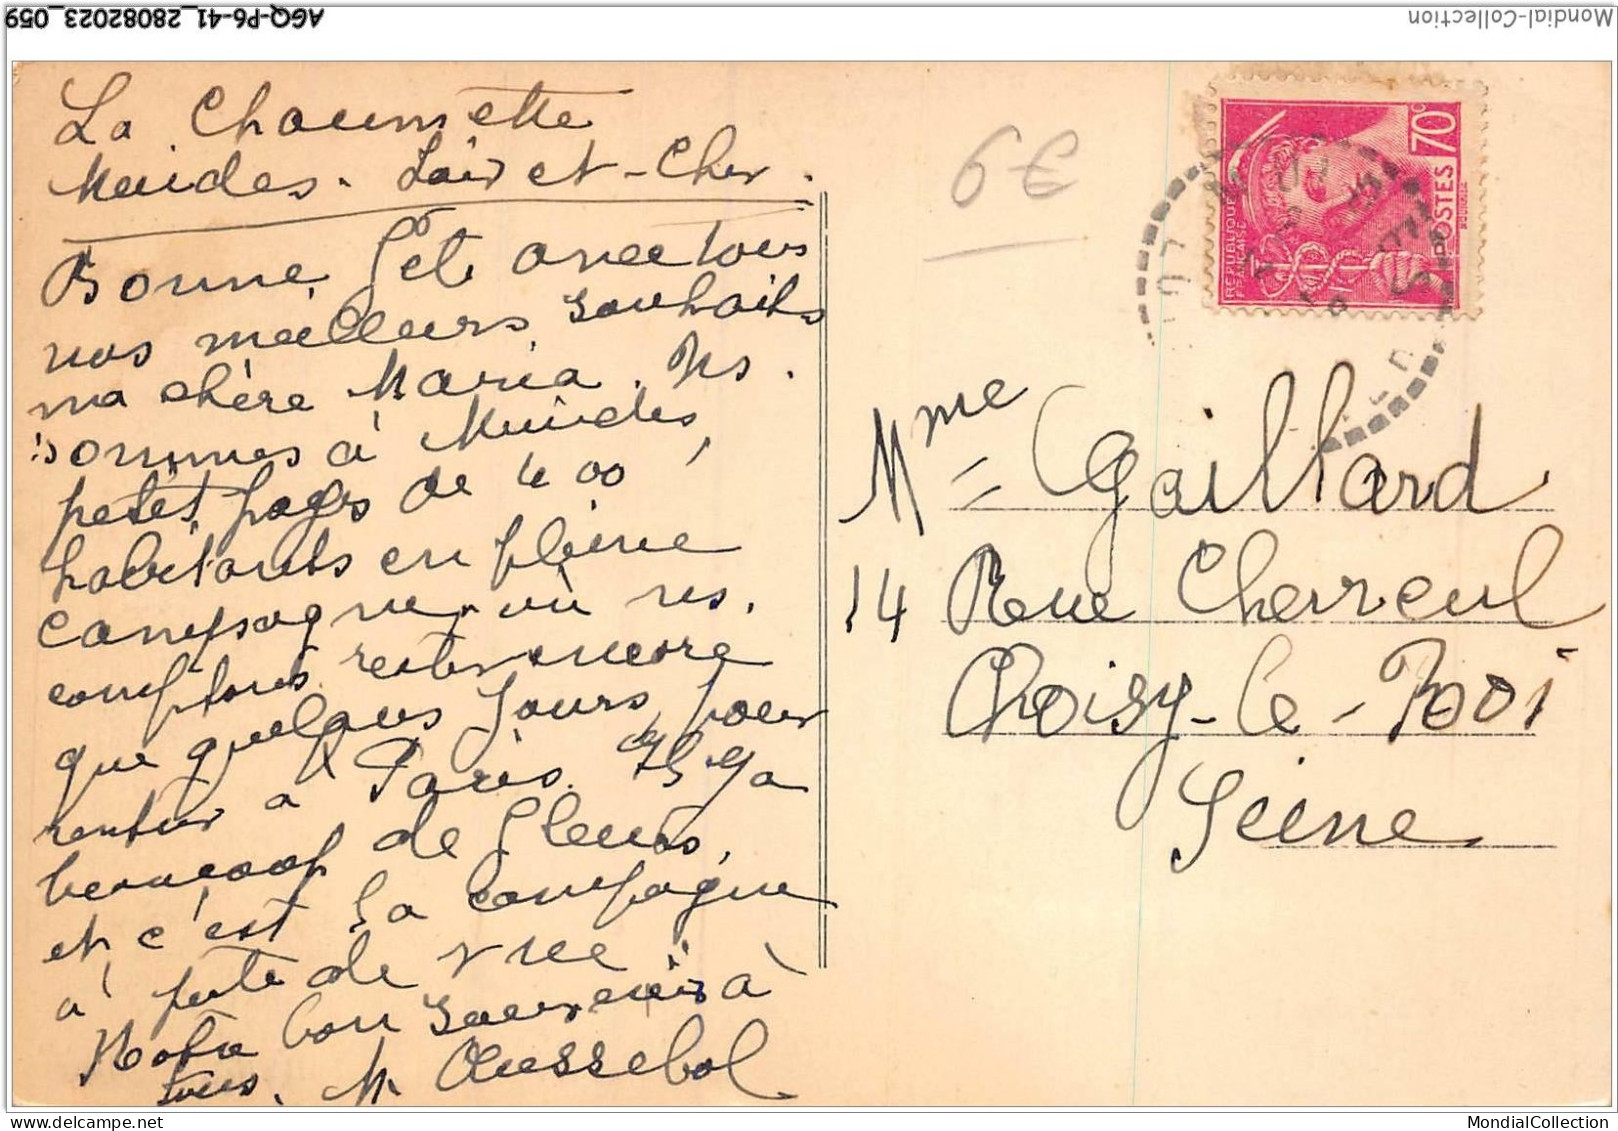 AGQ-P6-41_28082023_059
Mondial-Collection
La Chaumette
Muides. Loir et-Cher.
Bonne fet avec tous
nos meilleurs souhaits
ma chère Maria. Ns.
sommes à Muides,
petit pays de 400
habitants en pleine
campagne. où ns.
comptons rester encore
que quelques jours pour
rentrer à Paris. Il y a
beaucoup de fleurs,
et c'est la campagne
à perte de vue
Notre bon souvenir à
tous. M.
6€
70c
POSTES
REPUBLIQUE
FRANÇAISE
Mme Gaillard
14 Rue Chevreul
Choisy-le-Roi
Seine
MondialCollection.com